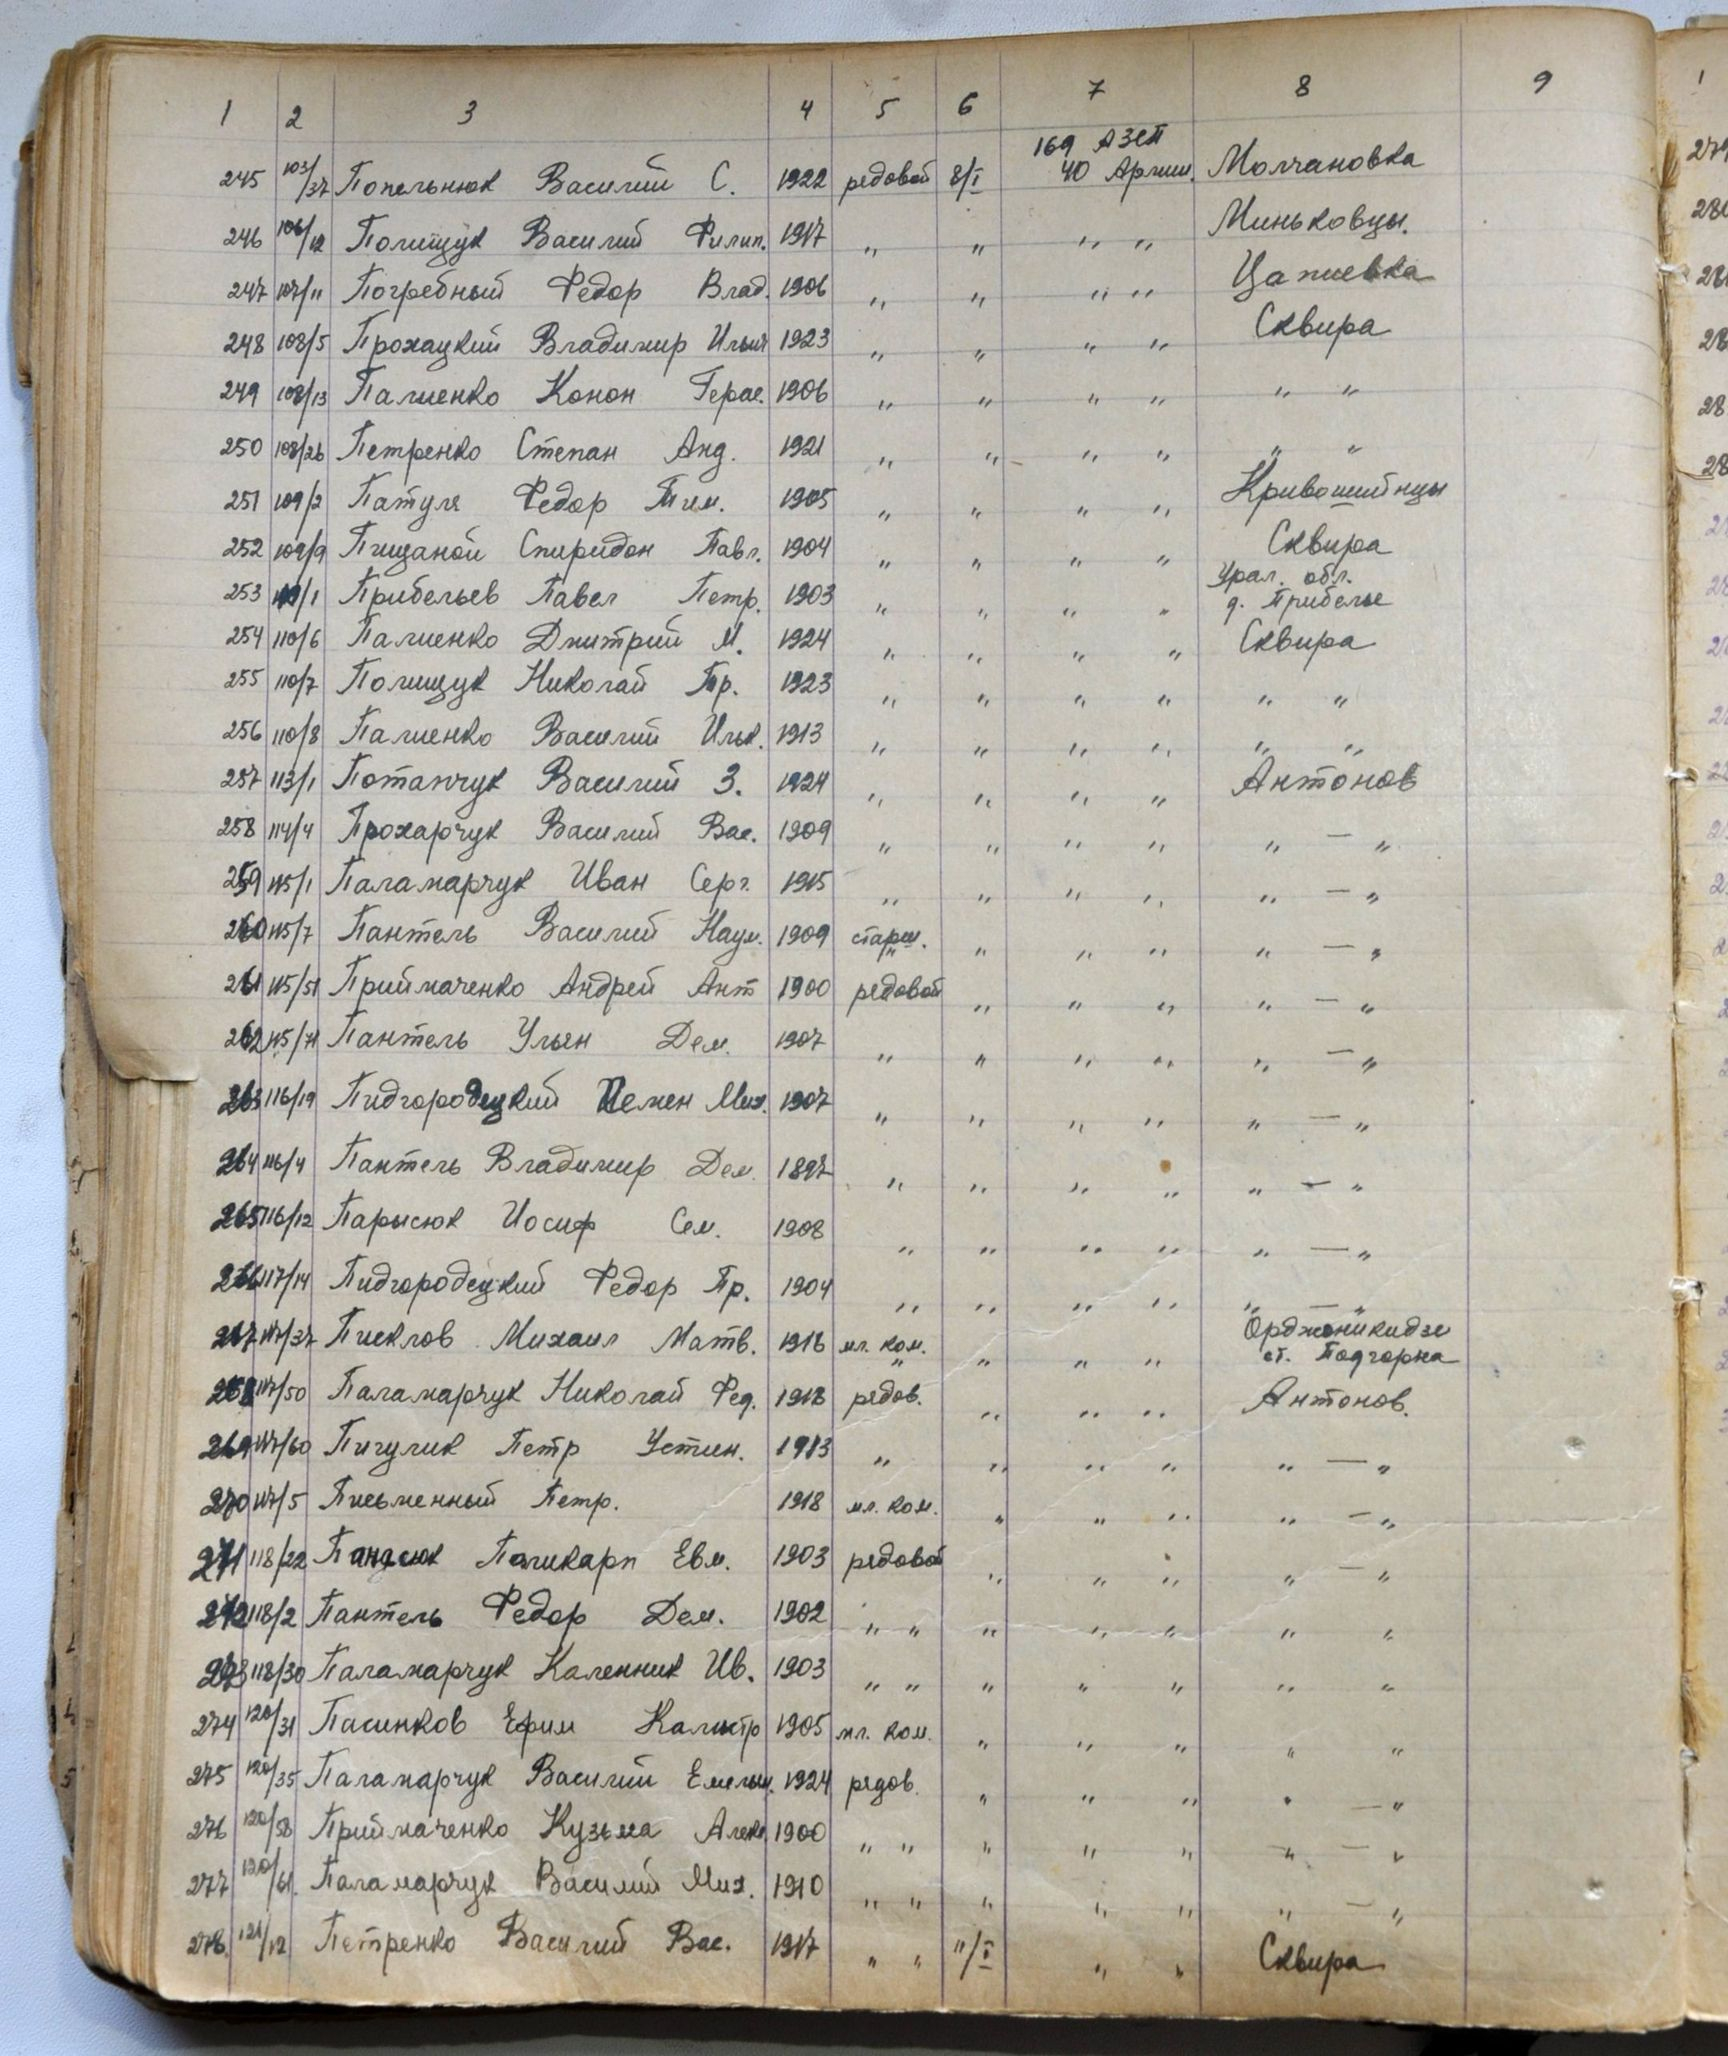 1 2 3 4 5 6 7 8 9
169 АЗСП
245 103/37 Попельнюк Василий С. 1922 редовой 8/I 40 Армии. Молчановка
246 106/12 Полищук Василий Филип. 1917 " " " " Миньковцы.
247 107/11 Погребный Федор Влад. 1906 " " " " Цапиевка
248 108/5 Прохацкий Владимир Ильич 1923 " " " " Сквира
249 108/13 Палиенко Конон Герас. 1906 " " " " " "
250 108/26 Петренко Степан Анд. 1921 " " " " " "
251 109/2 Патуля Федор Тим. 1905 " " " " Кривошийнцы
252 109/9 Пищаной Спиридон Павл. 1904 " " " " Сквира
Урал. обл.
253 /1 Прибельев Павел Петр. 1903 " " " " д. Прибелье
254 110/6 Палиенко Дмитрий М. 1924 " " " " Сквира
255 110/7 Полищук Николай Пр. 1923 " " " " " "
256 110/8 Палиенко Василий Ильк. 1913 " " " " " "
257 113/1 Потапчук Василий З. 1924 " " " " Антонов
258 114/4 Прохарчук Василий Вас. 1909 " " " " " — "
259 115/1 Паламарчук Иван Серг. 1915 " " " " " — "
260 115/7 Пантель Василий Наум. 1909 старш. " " " " " — "
261 115/51 Приймаченко Андрей Ант 1900 редовой " " " " — "
262 115/71 Пантель Ульян Дем. 1907 " " " " " — "
263 116/19 Пидгородецкий Семен Мих. 1907 " " " " " — "
264 116/4 Пантель Владимир Дем. 1897 " " " " " — "
265 116/12 Парысюк Иосиф Сем. 1908 " " " " " — "
266 117/14 Пидгородецкий Федор Пр. 1904 " " " " " — "
Орджоникидзе
267 117/37 Писклов Михаил Матв. 1916 мл. ком. " " " " ст. Подгорна
268 117/50 Паламарчук Николай Фед. 1918 рядов. " " " Антонов.
269 117/60 Пигулик Петр Устин. 1913 " " " " " — "
270 117/5 Письменный Петр. 1918 мл. ком. " " " " — "
271 118/22 Панасюк Поликарп Евм. 1903 рядовой " " " " — "
272 118/2 Пантель Федор Дем. 1902 " " " " " " "
273 118/30 Паламарчук Каленник Ив. 1903 " " " " " " "
274 120/31 Пасинков Ефим Калистр 1905 мл. ком. " " " " "
275 120/35 Паламарчук Василий Емельян. 1924 рядов. " " " " — "
276 120/58 Приймаченко Кузьма Алекс 1900 " " " " " " — "
277 120/61 Паламарчук Василий Мих. 1910 " " " " " " — "
278. 121/12 Петренко Василий Вас. 1917 " " "/I " " Сквира